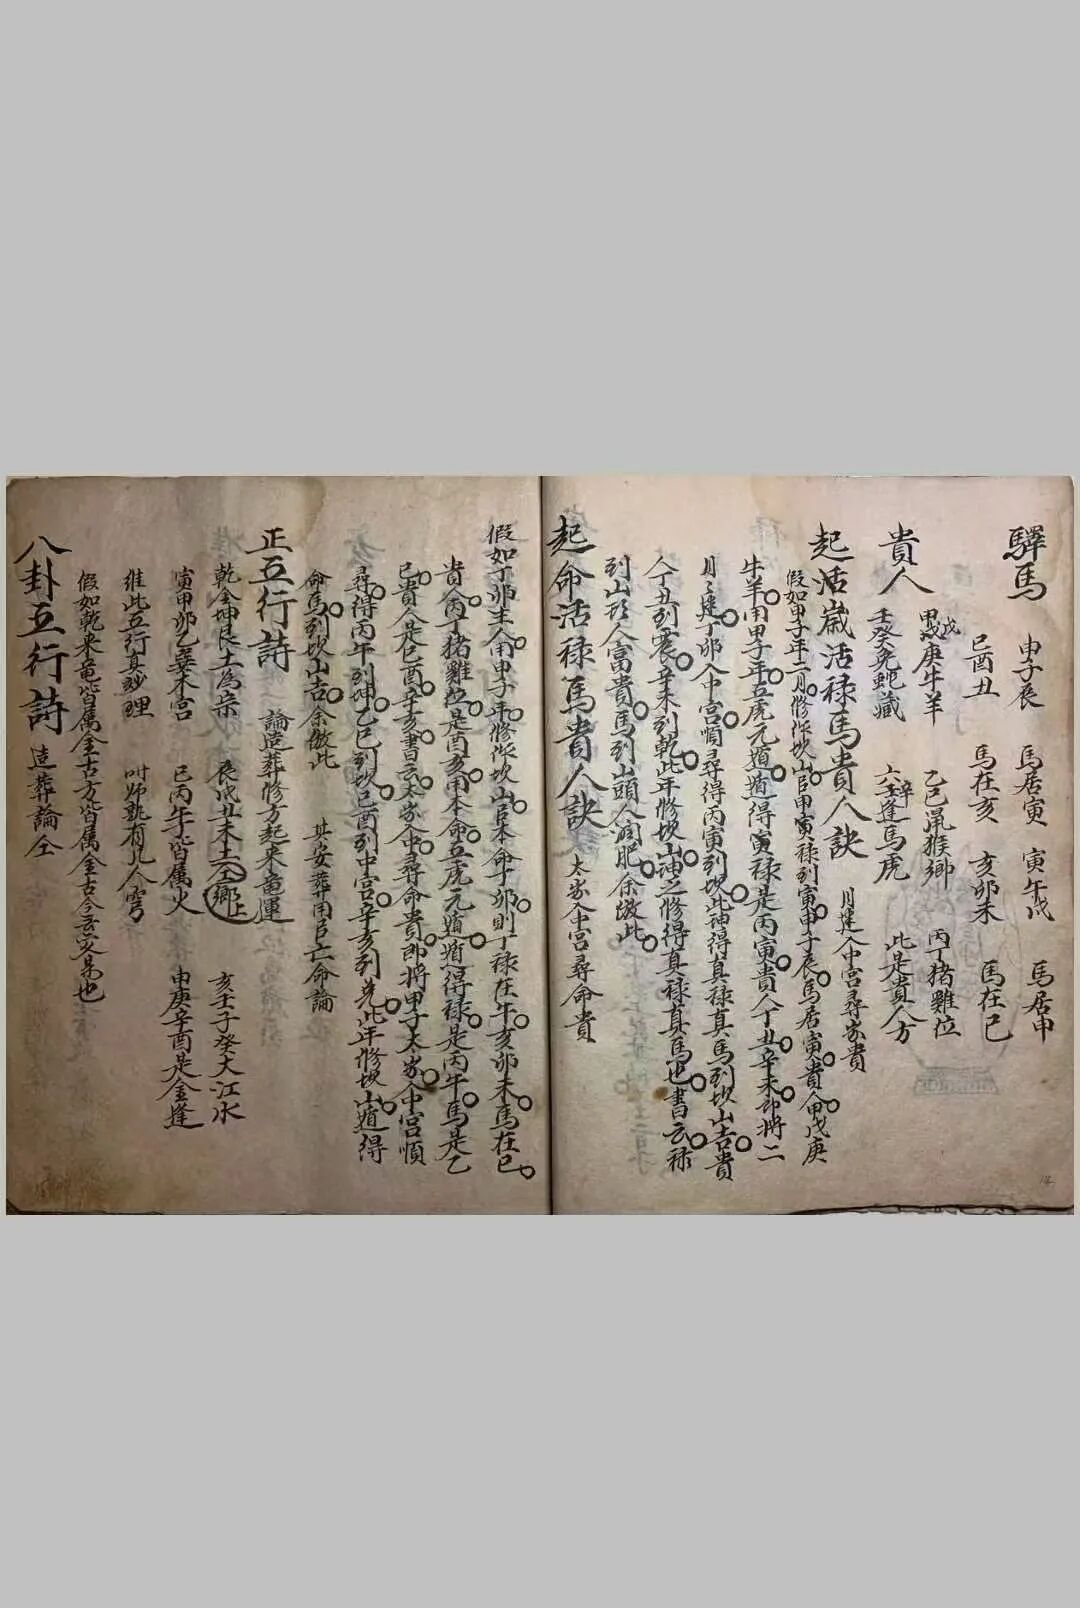 驛馬 申子辰 馬居寅 寅午戌 馬居申
巳酉丑 馬在亥 亥卯未 馬在巳
貴人 甲戊庚牛羊 乙己鼠猴鄉 丙丁猪雞位
壬癸兔蛇藏 六辛逢馬虎 此是貴人方
起活歲活禄馬貴人訣 月建入中宮尋家貴
假如甲子年二月修作坎山官甲寅禄到寅申子辰馬居寅貴人甲戊庚
牛羊用甲子年五虎元遁遁得寅禄是丙寅貴人丁丑辛未即將二
月建丁卯入中宮順尋得丙寅到坎此神得真禄真馬到坎山吉貴
人丁丑到震辛未到乾此年修坎山之修得真禄真馬也書云禄
到山頭人富貴馬到山頭人潤肥余倣此
起命活禄馬貴人訣 太岁入中宮尋命貴
假如丁卯生人用甲子年修作坎山官本命丁卯則丁禄在午亥卯未馬在巳
貴人丙丁猪雞位是酉亥用本命五虎元遁遁得禄是丙午馬是乙
巳貴人是己酉辛亥書云太岁入中尋命貴即将甲子太岁入中宮順
尋得丙午到坤乙巳到坎己酉到中宮辛亥到兑此年修坎山遁得
命馬到坎山吉余倣此 其安葬用亡命論
正五行詩 論造葬修方起來龍運
乾金坤艮土為宗 辰戌丑未土仝鄉 亥壬子癸大江水
寅甲卯乙巽木宮 巳丙午丁皆属火 申庚辛酉是金逢
惟此五行真妙理 叫師孰有几人穹
假如乾来竜皆属金古方皆属金古今玄灾易也
八卦五行詩 造葬論仝